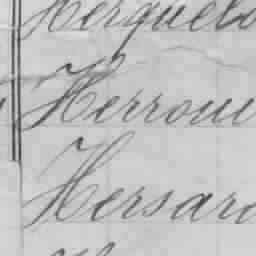 Herquelo
Herrou
Hersar